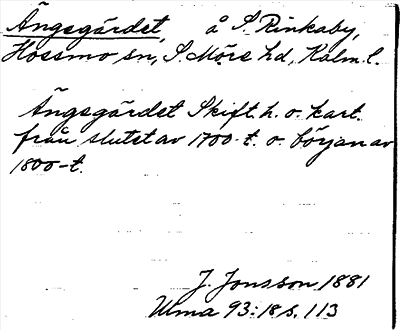 Ängsgärdet, å S. Rinkaby,
Hossmo sn, S. Möre hd, Kalm. l.
Ängsgärdet Skift. h. o. kart.
från slutet av 1700-t. o. början av
1800-t.
J. Jonsson 1881
Ulma 93:18 s. 113